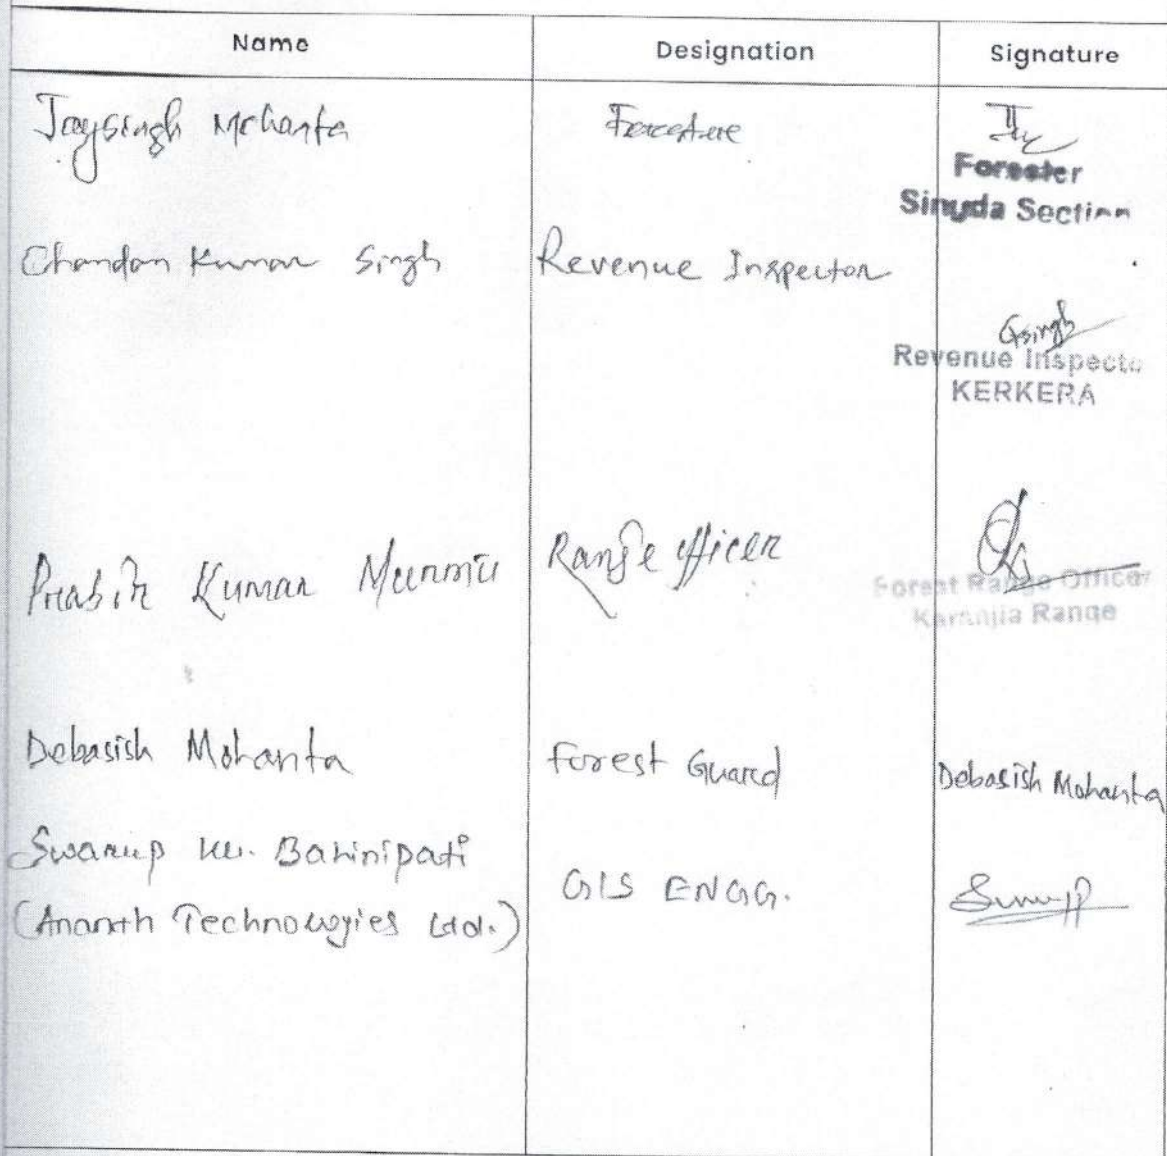 Name Designation Signature
Jaysingh Mohanta
Forester
Sinyda Section
Chandan Kumar Singh Revenue Inspector
Revenue Inspecto
KERKERA
Prabir Kumar Murmu Range officer
Forest Range Officer
Karanjia Range
Debasish Mohanta Forest Guard Debasish Mohanta
Swarup Ku. Bahinipati
(Ananth Technologies Ltd.) GIS ENGG.